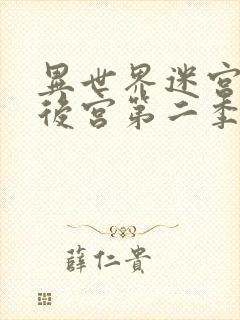 異世界迷宮
後宮第二季
薛仁貴